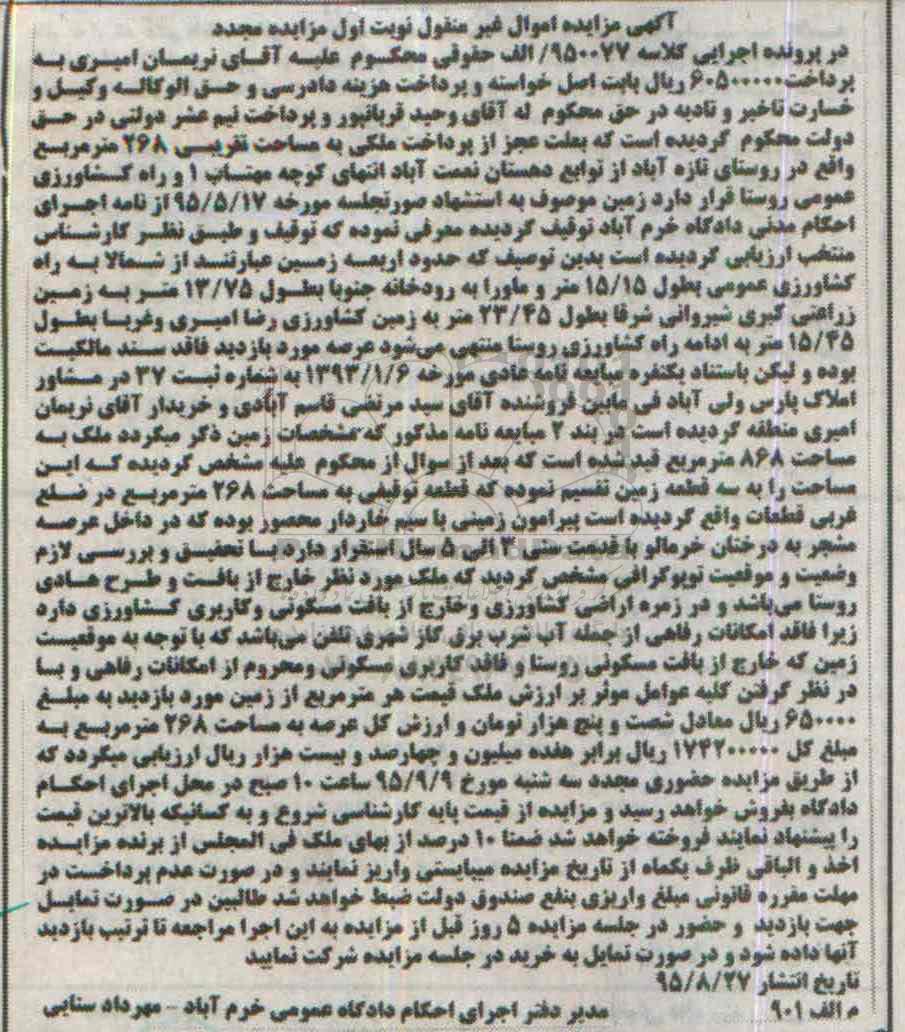 آگهی مزایده اموال غیر منقول نوبت اول مزایده مجدد
در پرونده اجرایی کلاسه ۹۵۰۰۷۷/ الف حقوقی محکوم علیه آقای نریمان امیری به
پرداخت ۶۰۵۰۰۰۰۰۰ ریال بابت اصل خواسته و پرداخت هزینه دادرسی و حق الوکاله وکیل و
خسارت تاخیر و تادیه در حق محکوم له آقای وحید قربانپور و پرداخت نیم عشر دولتی در حق
دولت محکوم گردیده است که بعلت عجز از پرداخت ملکی به مساحت تقریبی ۲۶۸ مترمربع
واقع در روستای تازه آباد از توابع دهستان نعمت آباد انتهای کوچه مهتاب ۱ و راه کشاورزی
عمومی روستا قرار دارد زمین موصوف به استشهاد صورتجلسه مورخه ۹۵/۵/۱۷ از نامه اجرای
احکام مدنی دادگاه خرم آباد توقیف گردیده معرفی نموده که توقیف و طبق نظر کارشناس
منتخب ارزیابی گردیده است بدین توصیف که حدود اربعه زمین عبارتند از شمالا به راه
کشاورزی عمومی بطول ۱۵/۱۵ متر و ماورا به رودخانه جنوبا بطول ۱۳/۷۵ متر به زمین
زراعتی کبری شیروانی شرقا بطول ۲۳/۴۵ متر به زمین کشاورزی رضا امیری وغربا بطول
۱۵/۴۵ متر به ادامه راه کشاورزی روستا منتهی می‌شود عرصه مورد بازدید فاقد سند مالکیت
بوده و لیکن باستناد یکنفره مبایعه نامه عادی مورخه ۱۳۹۳/۱/۶ به شماره ثبت ۳۷ در مشاور
املاک پارس ولی آباد فی مابین فروشنده آقای سید مرتضی قاسم آبادی و خریدار آقای نریمان
امیری منطقه گردیده است در بند ۲ مبایعه نامه مذکور که مشخصات زمین ذکر میگردد ملک به
مساحت ۸۶۸ مترمربع قید شده است که بعد از سوال از محکوم علیه مشخص گردیده که این
مساحت را به سه قطعه زمین تقسیم نموده که قطعه توقیفی به مساحت ۲۶۸ مترمربع در ضلع
غربی قطعات واقع گردیده است پیرامون زمینی با سیم خاردار محصور بوده که در داخل عرصه
مشجر به درختان خرمالو با قدمت سنی ۳ الی ۵ سال استقرار دارد با تحقیق و بررسی لازم
وضعیت و موقعیت توپوگرافی مشخص گردید که ملک مورد نظر خارج از بافت و طرح هادی
روستا می‌باشد و در زمره اراضی کشاورزی وخارج از بافت مسکونی وکاربری کشاورزی دارد
زیرا فاقد امکانات رفاهی از جمله آب شرب برق گاز شهری تلفن می‌باشد که با توجه به موقعیت
زمین که خارج از بافت مسکونی روستا و فاقد کاربری مسکونی ومحروم از امکانات رفاهی و با
در نظر گرفتن کلیه عوامل موثر بر ارزش ملک قیمت هر مترمربع از زمین مورد بازدید به مبلغ
۶۵۰۰۰۰ ریال معادل شصت و پنج هزار تومان و ارزش کل عرصه به مساحت ۲۶۸ مترمربع به
مبلغ کل ۱۷۴۲۰۰۰۰۰ ریال برابر هفده میلیون و چهارصد و بیست هزار ریال ارزیابی میگردد که
از طریق مزایده حضوری مجدد سه شنبه مورخ ۹۵/۹/۹ ساعت ۱۰ صبح در محل اجرای احکام
دادگاه بفروش خواهد رسید و مزایده از قیمت پایه کارشناسی شروع و به کسانیکه بالاترین قیمت
را پیشنهاد نمایند فروخته خواهد شد ضمنا ۱۰ درصد از بهای ملک فی المجلس از برنده مزایده
اخذ و الباقی ظرف یکماه از تاریخ مزایده میبایستی واریز نمایند و در صورت عدم پرداخت در
مهلت مقرره قانونی مبلغ واریزی بنفع صندوق دولت ضبط خواهد شد طالبین در صورت تمایل
جهت بازدید و حضور در جلسه مزایده ۵ روز قبل از مزایده به این اجرا مراجعه تا ترتیب بازدید
آنها داده شود و در صورت تمایل به خرید در جلسه مزایده شرکت نمایید
تاریخ انتشار ۹۵/۸/۲۷
م الف ۹۰۱ مدیر دفتر اجرای احکام دادگاه عمومی خرم آباد - مهرداد سنایی